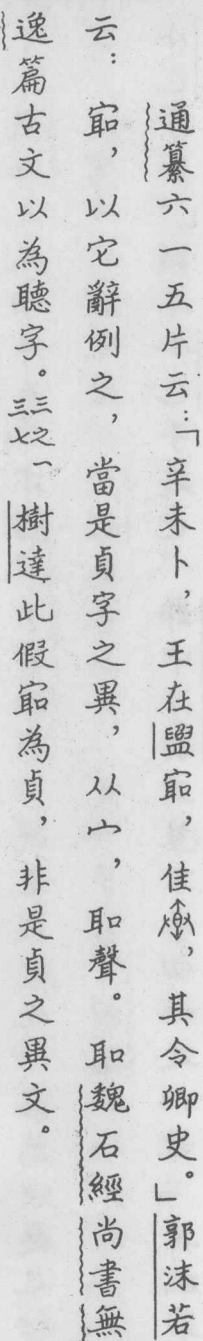 通纂六一五片云：「辛未卜，王在盟𡧍，隹，其令卿史。」郭沫若
云：𡧍，以它辭例之，當是貞字之異，从宀，耴聲。耴魏石經尚書無
逸篇古文以為聽字。三三七之一樹達此假𡧍為貞，非是貞之異文。